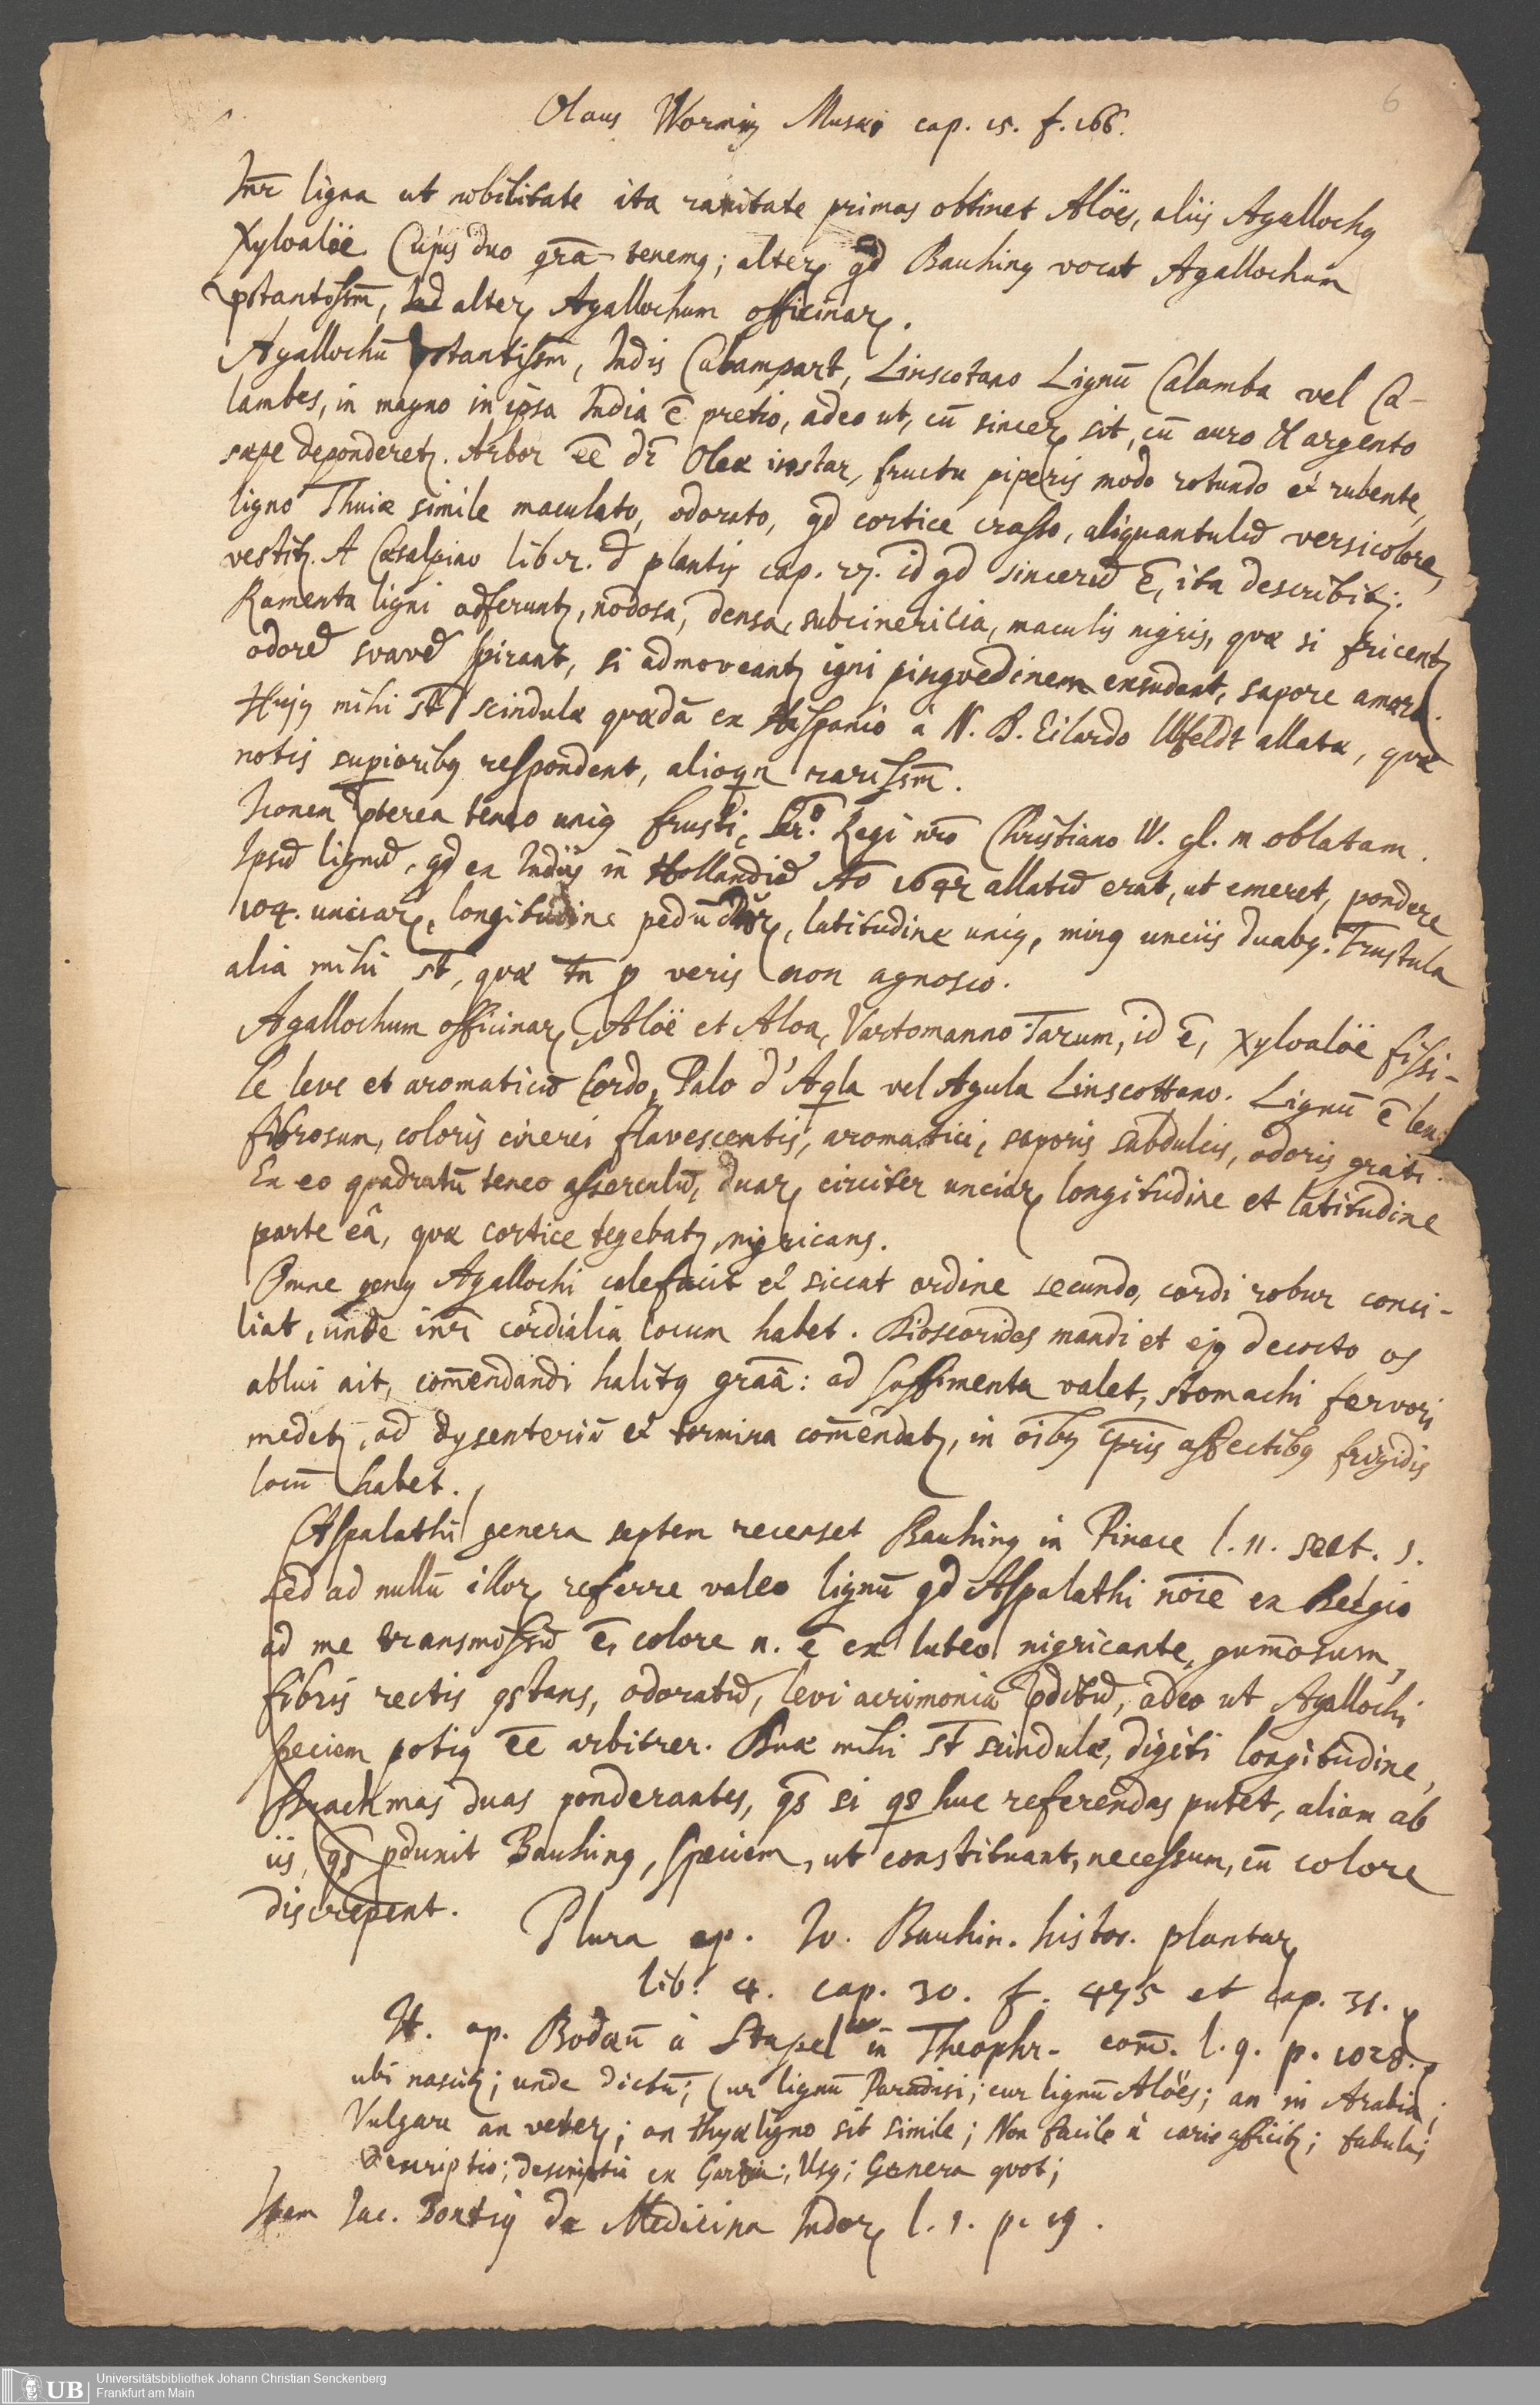 6
Olaus Wormiꝰ Musæi cap. 15. f. 166.
Inr̄ ligna ut nobilitate ita raritate primas obtinet Aloës, aliis Agallochꝰ
Xyloaloë. Cujus duo gr̄a tenemꝰ; alterꝝ qd Bauhinꝰ vocat Agallochum
p̄stantissm̄, alterꝝ Agallochum officinarꝝ.
Agallochū p̄stantissm̄, Indis Calampart, Linscotano Lignū Calamba vel Ca-
lambes, in magno in ipsa India ē pretio, adeo ut, cū sincerꝝ sit, cū auro et argento
sæpe deponderetꝝ. Arbor ēē dr̄ Oleæ instar, fructu piperis modo rotundo et rubente,
ligno Thuiæ simile maculato, odorato, qd cortice crasso, aliquantulū versicolore,
vestitꝝ. A Cæsalpino libr. d plantis cap. 27. id qd sincerū ē, ita describitꝝ.
Ramenta ligni adferuntꝝ, nodosa, densa, subcinericia, maculis nigris, quæ si fricentꝝ
odorē svavē spirant, si admoveantꝝ igni pingvedinem exsudant, sapore amaro.
Hujꝰ mihi st̄ scindulæ quædā ex Hispaniâ à N. B. Eilardo Ulfeldt allatæ, quæ
notis supioribꝰ respondent, alioqn rarissm̄.
Iconem p̄terea teneo uniꝰ frusti, Ser.o Regi nr̄o Christiano IV. gl. m oblatam.
Ipsū lignū, qd ex Indiis in Hollandiā Ao 1642 allatū erat, ut emeret, pondere
104. unciarꝝ, longitudine pedū duorꝝ, latitudine uniꝰ, minꝰ unciis duabꝰ. Frustula
alia mihi st̄, quæ tn̄ p veris non agnosco.
Agallochum officinarꝝ, Aloë et Aloa, Vartomanno Tarum, id ē, Xyloaloë fissi-
le leve et aromaticū Cordo, Palo d'Aqla vel Agula Linscottano. Lignū ē leve
fibrosum, coloris cinerei flavescentis, aromatici, saporis subdulcis, odoris grati.
Ex eo quadratū teneo asserculū, duarꝝ circiter unciarꝝ longitudine et latitudine
parte eâ, quæ cortice tegebatꝝ, nigricans.
Omne genꝰ Agallochi calefacit et siccat ordine secundo, cordi robur conci-
liat, unde inr̄ cordialia locum habet. Dioscorides mandi et ejꝰ decocto os
ablui ait, com̄endandi halitꝰ grāâ: ad suffimenta valet, stomachi fervori
medetꝝ, ad dysenteriā et tormina com̄endatꝝ, in oībꝰ cpr̄is affectibꝰ frigidis
locū habet.
Aspalathi genera septem recenset Bauhinꝰ in Pinace l. 11. sect. 1.
sed ad nullū illorꝝ referre valeo lignū qd Aspalathi nōīe ex Belgio
ad me transmissū ē, colore n. ē ex luteo nigricante, gum̄osum,
fibris rectis ꝯstans, odoratū, levi acrimoniâ p̄ditū, adeo ut Agallochi
speciem potiꝰ ēē arbitrer. Duæ mihi st̄ scindulæ, digiti longitudine,
Drachmas duas ponderantes, qs̄ si qs huc referendas putet, aliam ab
iis, qs̄ ꝓdunit Bauhinꝰ, speciem, ut constituant, necessum, cū colore
discrepent.
Plura ap. Io. Bauhin. histor. plantarꝝ
lib. 4. cap. 30. f. 475 et cap. 31.
It. ap. Bodæū à Stapel in Theophr. com̄. l. 9. p. 1028.
ubi nascitꝝ; unde dictū; cur lignū Paradisi; cur lignū Aloës; an in Arabia;
Vulgare an veterꝝ; an thyæ ligno sit simile; Non facile à carie afficitꝝ; fabula;
Descriptio; descriptio ex Garzia; Usꝰ; Genera quot;
Item Jac. Bontiꝰ de Medicina Indorꝝ l. 1. p. 19.
UB
Universitätsbibliothek Johann Christian Senckenberg
Frankfurt am Main